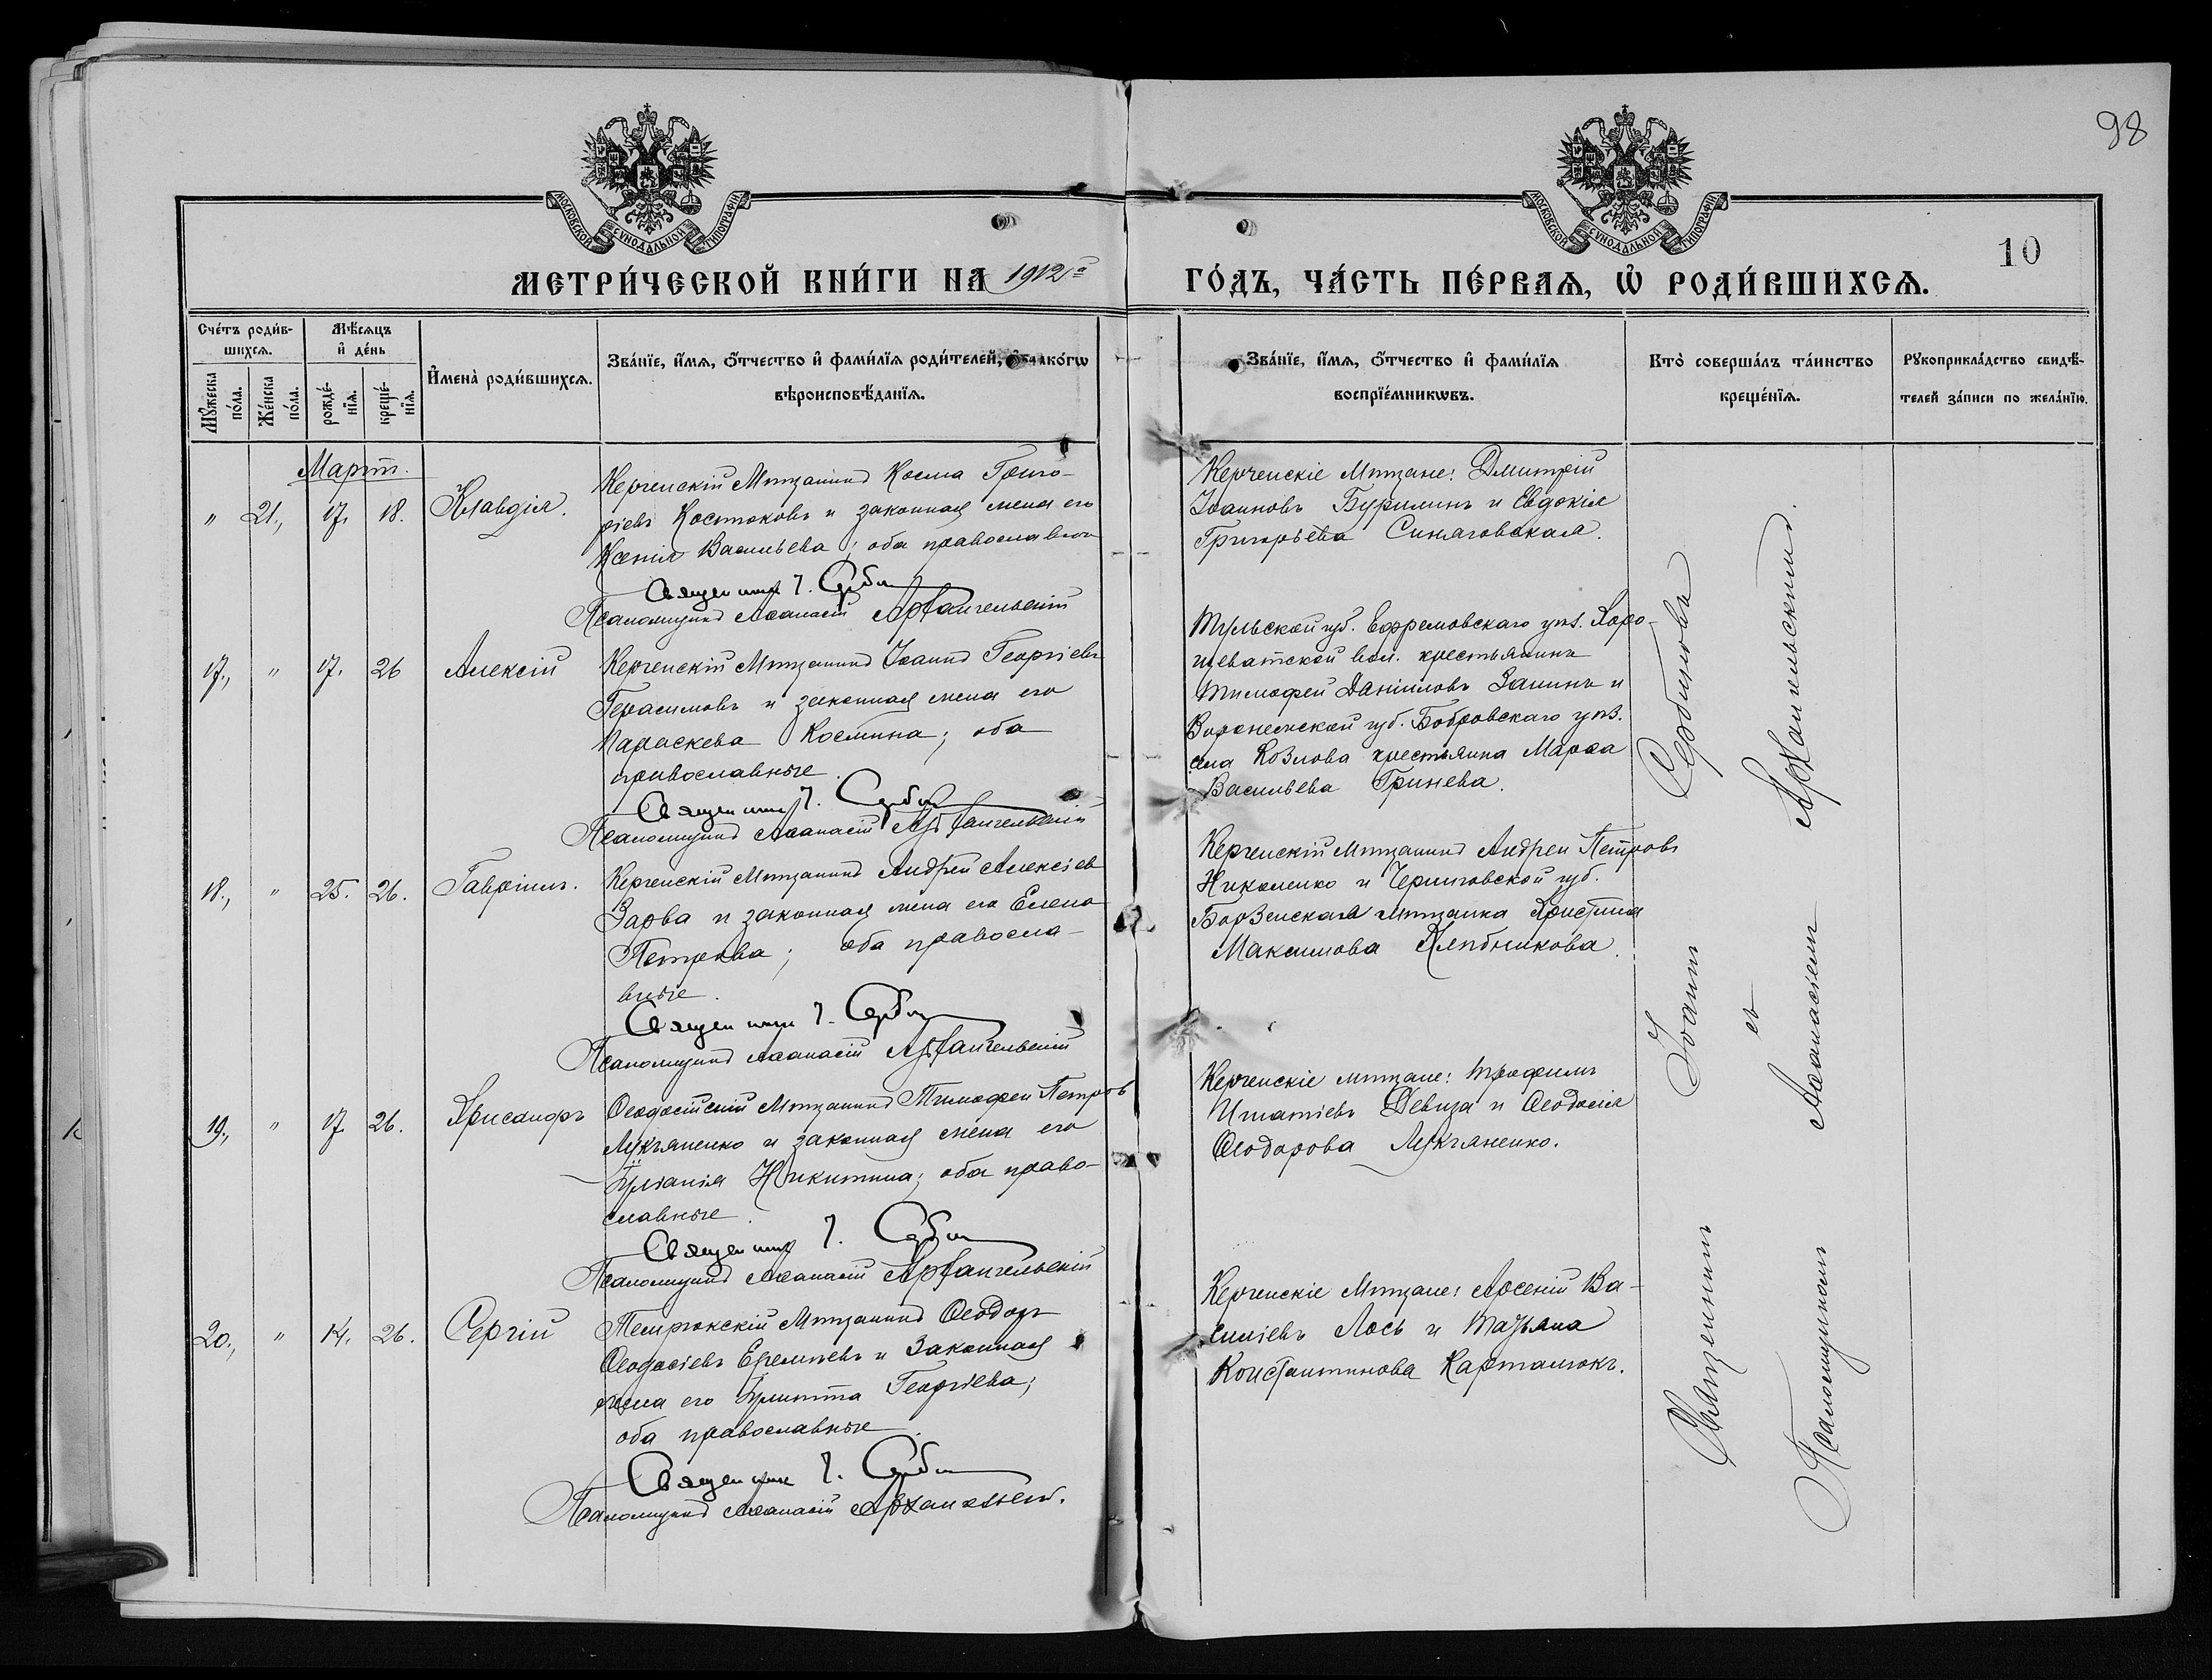 98
10
МОСКОВСКОЙ СѴНОДАЛЬНОЙ ТИПОГРАФІИ
МОСКОВСКОЙ СѴНОДАЛЬНОЙ ТИПОГРАФІИ
МЕТРИ́ЧЕСКОЙ КНИ́ГИ НА 1912й
ГО́ДЪ, ЧА́СТЬ ПЕ́РВАѦ, Ѡ҆ РОДИ́ВШИХСѦ.
Сче́тъ роди́в-
шихсѧ.
Мѣ́сѧцъ
и҆ де́нь
Мꙋ́жеска
по́ла.
Же́нска
по́ла.
рожде́-
нїѧ.
креще́-
нїѧ.
И҆мена̀ роди́вшихсѧ.
Зва́нїе, и҆́мѧ, ѻ҆́тчество и҆ фами́лїѧ роди́телей, и҆ како́гѡ
вѣроисповѣ́данїѧ.
Зва́нїе, и҆́мѧ, ѻ҆́тчество и҆ фами́лїѧ
воспрїе́мникѡвъ.
Кто̀ соверша́лъ та́инство
креще́нїѧ.
Рꙋкоприкла́дство свидѣ́-
телей за́писи по жела́нїю.
Мартъ.
" 21., 17. 18. Клавдія.
Керченскій Мѣщанинъ Косма Григо-
ріевъ Костюковъ и законная жена его
Ксенія Васильева; оба православные
Священникъ І. Сербин
Псаломщикъ Аѳанасій Архангельскій
Керченскіе Мѣщане: Дмитрій
Іоанновъ Бурилинъ и Евдокія
Григорьева Синяговская.
17., " 17. 26 Алексій
Керченскій Мѣщанинъ Іоаннъ Георгіевъ
Герасимовъ и законная жена его
Параскева Космина; оба
православные.
Священникъ І. Сербин
Псаломщикъ Аѳанасій Архангельскій
Тульской губ. Ефремовскаго уѣз. Хоро-
щеватской вол. крестьянинъ
Тимофей Даніиловъ Занинъ и
Воронежской губ. Бобровскаго уѣз.
села Козлова крестьянка Марѳа
Васильева Гринева.
18., " 25. 26. Гавріилъ.
Керченскій Мѣщанинъ Андрей Алексіев
Зарва и законная жена его Елена
Петрова; оба правосла-
вные.
Священникъ І. Сербин
Псаломщикъ Аѳанасій Архангельскій
Керченскій Мѣщанинъ Андрей Петровъ
Николенко и Черниговской губ.
Борзенская мѣщанка Христина
Максимова Хлѣбникова.
19., " 17. 26. Хрисанфъ
Ѳеодосійскій Мѣщанинъ Тимофей Петров
Лукьяненко и законная жена его
Іуліанія Никитина; оба право-
славные.
Священникъ І. Сербин
Псаломщикъ Аѳанасій Архангельскій
Керченскіе мѣщане: Трофимъ
Игнатіевъ Девица и Ѳеодосія
Ѳеодорова Лукьяненко.
20., " 14. 26. Сергій
Темрюкскій Мѣщанинъ Ѳеодоръ
Ѳеодосіевъ Еремѣевъ и Законная
жена его Іулитта Георгіева;
оба православные.
Священникъ І. Сербин
Псаломщикъ Аѳанасій Архангельск.
Керченскіе Мѣщане: Арсеній Ва-
силіевъ Лось и Татьяна
Константинова Карталюкъ.
Священникъ Іоаннъ Сербинова
съ
Псаломщикомъ Аѳанасіемъ Архангельскимъ.